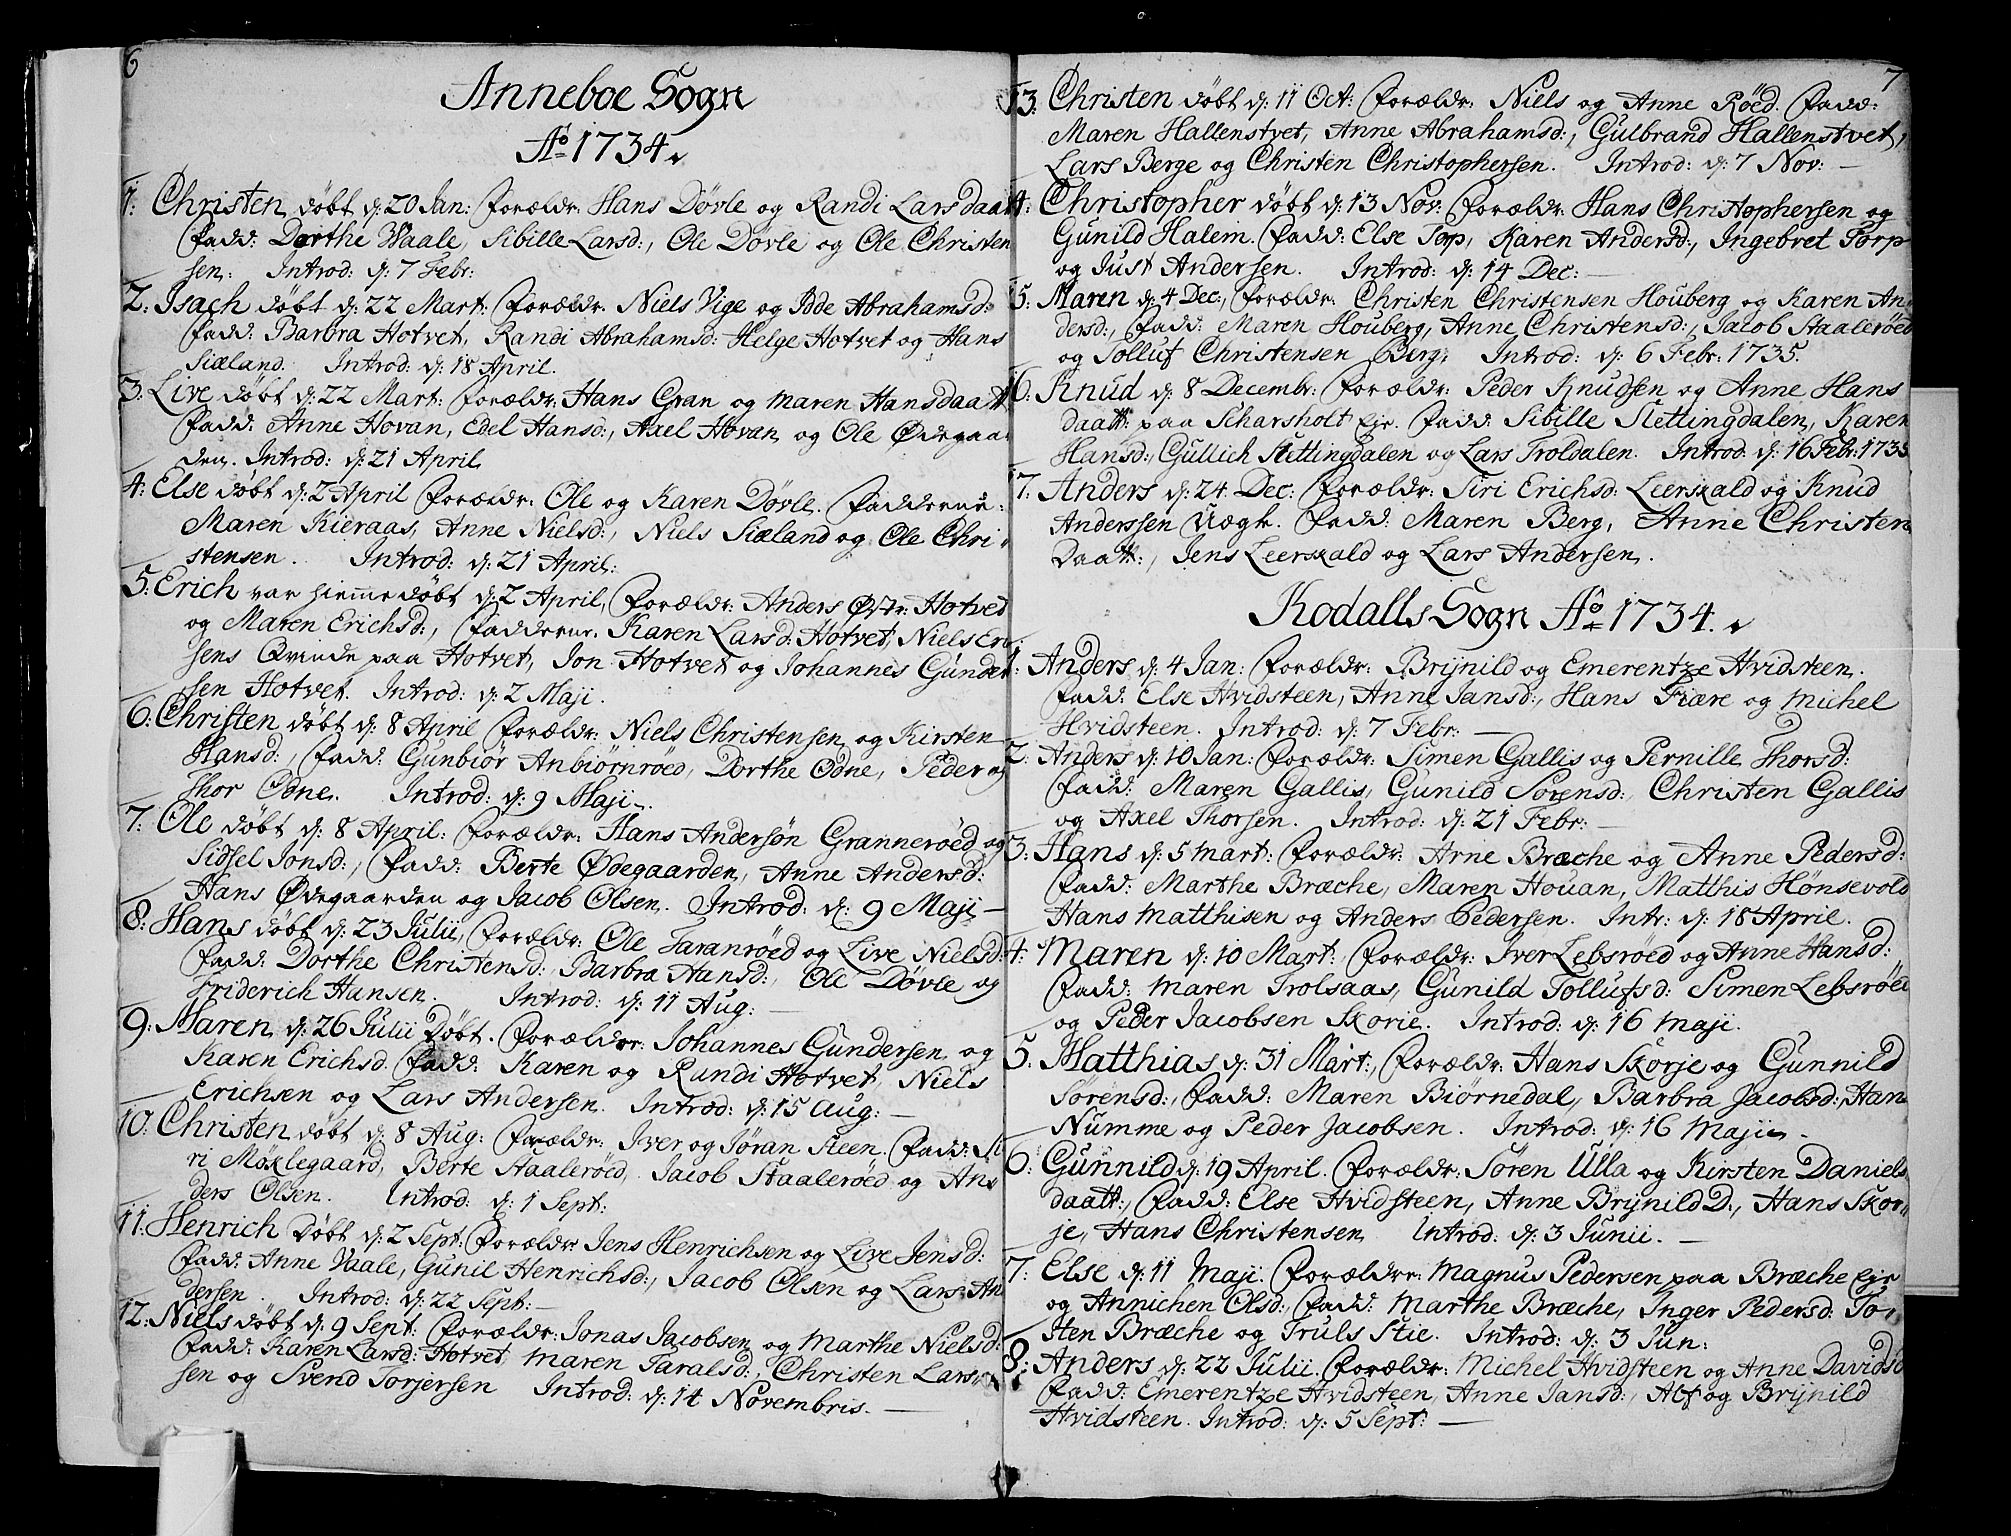 6
Anneboe Sogn
Aº 1734.
1: Christen døbt d: 20 Jan: Forældr: Hans Døvle og Randi Larsdaatt
Fadd: Dorthe Vaale, Sibille Larsd:, Ole Døvle og Ole Christen
sen: Introd: d: 7 Febr:
2: Isach døbt d: 22 Mart: Forældr: Niels Vige og Bode Abrahamsd:
Fadd: Barbra Hotvet, Randi Abrahamsd: Helge Hotvet og Hans
Siæland. Introd: d: 18 April.
3: Live døbt d: 22 Mart: Forældr: Hans Gran og Maren Hansdaatt
Fadd: Anne Hovan, Edel Hansd:, Axel Hovan og Ole Ødegaar
den. Introd: d: 21 April
4: Else døbt d: 2 April Forældr: Ole og Karen Døvle. Fadderne:
Maren Kieraas, Anne Nielsd:, Niels Siæland og Ole Chri-
stensen. Introd: d: 21 April:
5: Erich var hiemme døbt d: 2 April, Forældr: Anders Østr: Hotvet
og Maren Erichsd:, Fadderne. Karen Larsd: Hotvet, Niels Erich
sens Qvinde paa Hotvet, Jon Hotvet og Johannes Gunder
sen Hotvet. Introd: d: 2 Maji.
6: Christen døbt d: 8 April Forældr: Niels Christensen og Kirsten
Hansd:, Fadd: Gunbiør Anbiørnrøed, Dorthe Odne, Peder og
Thor Odne. Introd: d: 9 Maji.
7: Ole døbt d: 8 April: Forældr: Hans Andersøn Grannerøed og
Sidsel Jonsd:, Fadd: Berte Ødegaarden, Anne Andersd:
Hans Ødegaarden og Jacob Olsen. Introd: d: 9 Maji —
8: Hans døbt d: 23 Julii, Forældr: Ole Taranrøed og Live Nielsd:
Fadd: Dorthe Christensd:, Barbra Hansd:, Ole Døvle og
Friderich Hansen. Introd: d: 11 Aug: —
9: Maren d: 26 Julii Døbt. Forældre: Johannes Gundersen og
Karen Erichsd. Fadd: Karen og Randi Hotvet, Niels
Erichsen og Lars Andersen. Introd: d: 15 Aug: —
10: Christen døbt d: 8 Aug: Forældr: Iver og Jøran Steen. Fadd: Si
ri Møklegaard, Berte Staalerøed, Jacob Staalerøed og An
ders Olsen. Introd: d: 1 Sept:
11: Henrich Døbt d: 2 Sept: Forældr: Jens Henrichsen og Live Jensd:
Fadd: Anne Vaale, Gunil Henrichsd:, Jacob Olsen og Lars An
dersen. Introd: d: 22 Sept: —
12: Niels døbt d: 9 Sept: Forældr: Jonas Jacobsen og Marthe Nielsd:
Fadd: Karen Larsd: Hotvet, Maren Taralsd:, Christen Lars
sen og Svend Torjersen Introd: d: 14 Novembris. —
7
13: Christen døbt d: 11 Oct: Forældr: Niels og Anne Røed. Fadd:
Maren Hallenstvet, Anne Abrahamsd:, Gulbrand Hallenstvet,
Lars Berge og Christen Christophersen. Introd: d: 7 Nov: —
14: Christopher døbt d: 13 Nov: Forældr: Hans Christophersen og
Gunild Halem. Fadd: Else Torp, Karen Andersd:, Ingebret Torp
og Just Andersen. Introd: d: 14 Dec: —
15: Maren d: 4 Dec:, Forældr: Christen Christensen Houberg og Karen An
dersd:, Fadd: Maren Houberg, Anne Christensd:, Jacob Staalerøed
og Tolluf Christensen Berg: Introd: d: 6 Febr: 1735.
16: Knud d: 8 Decembr: Forældr: Peder Knudsen og Anne Hans
daatt: paa Scharsholt Eje. Fadd: Sibille Slettingdalen, Karen
Hansd:, Gullich Slettingdalen og Lars Troldalen. Introd: d: 16 Febr: 1735
17: Anders d: 24 Dec: Forældr: Siri Erichsd: Leerskald og Knud
Anderssen Uægt. Fadd: Maren Berg, Anne Christen
Daatt:, Jens Leerskald og Lars Andersen.
Kodalls Sogn Aº 1734.
1: Anders d: 4 Jan: Forældr: Brijnild og Emerentze Hvidsteen.
Fadd: Else Hvidsteen, Anne Jansd:, Hans Fiære og Michel
Hvidsteen. Introd: d: 7 Febr: —
2: Anders d: 10 Jan: Forældr: Simen Gallis og Pernille Thorsd:
Fadd: Maren Gallis, Gunild Sørensd:, Christen Gallis
og Axel Thorsen. Introd: d: 21 Febr: —
3: Hans d: 5 Mart: Forældr: Arne Bræche og Anne Pedersd:
Fadd: Marthe Bræche, Maren Houan, Matthis Hønsevold
Hans Matthisen og Anders Pedersen. Intr: d: 18 April.
4: Maren d: 10 Mart:, Forældr: Iver Lebsrøed og Anne Hansd:
Fadd: Maren Trolsaas, Gunild Tollufsd: Simen Lebsrøed
og Peder Jacobsen Skorie. Introd: d: 16 Maji.
5: Matthias d: 31 Mart:, Forældr: Hans Skorje og Gunnild
Sørensd:, Fadd: Maren Biørnedal, Barbra Jacobsd:, Hans
Numme og Peder Jacobsen. Introd: d: 16 Maji. —
6: Gunnild d: 19 April. Forældr: Søren Ulla og Kirsten Daniels
daatt:, Fadd: Else Hvidsteen, Anne Brijnild D:, Hans Skor-
je, Hans Christensen Introd: d: 3 Junii. —
7: Else d: 11 Maji. Forældre: Magnus Pedersen paa Bræche Eje
og Annichen Olsd:, Fadd: Marthe Bræche, Inger Pedersd: To-
sten Bræche og Truls Stie. Introd: d: 3 Jun:
8: Anders d: 22 Julii. Forældr: Michel Hvidsteen og Anne Davidsd
Fadd: Emerentze Hvidsteen, Anne Jansd:, Alf og Brijnild
Hvidsteen. Introd: d: 5 Sept: —